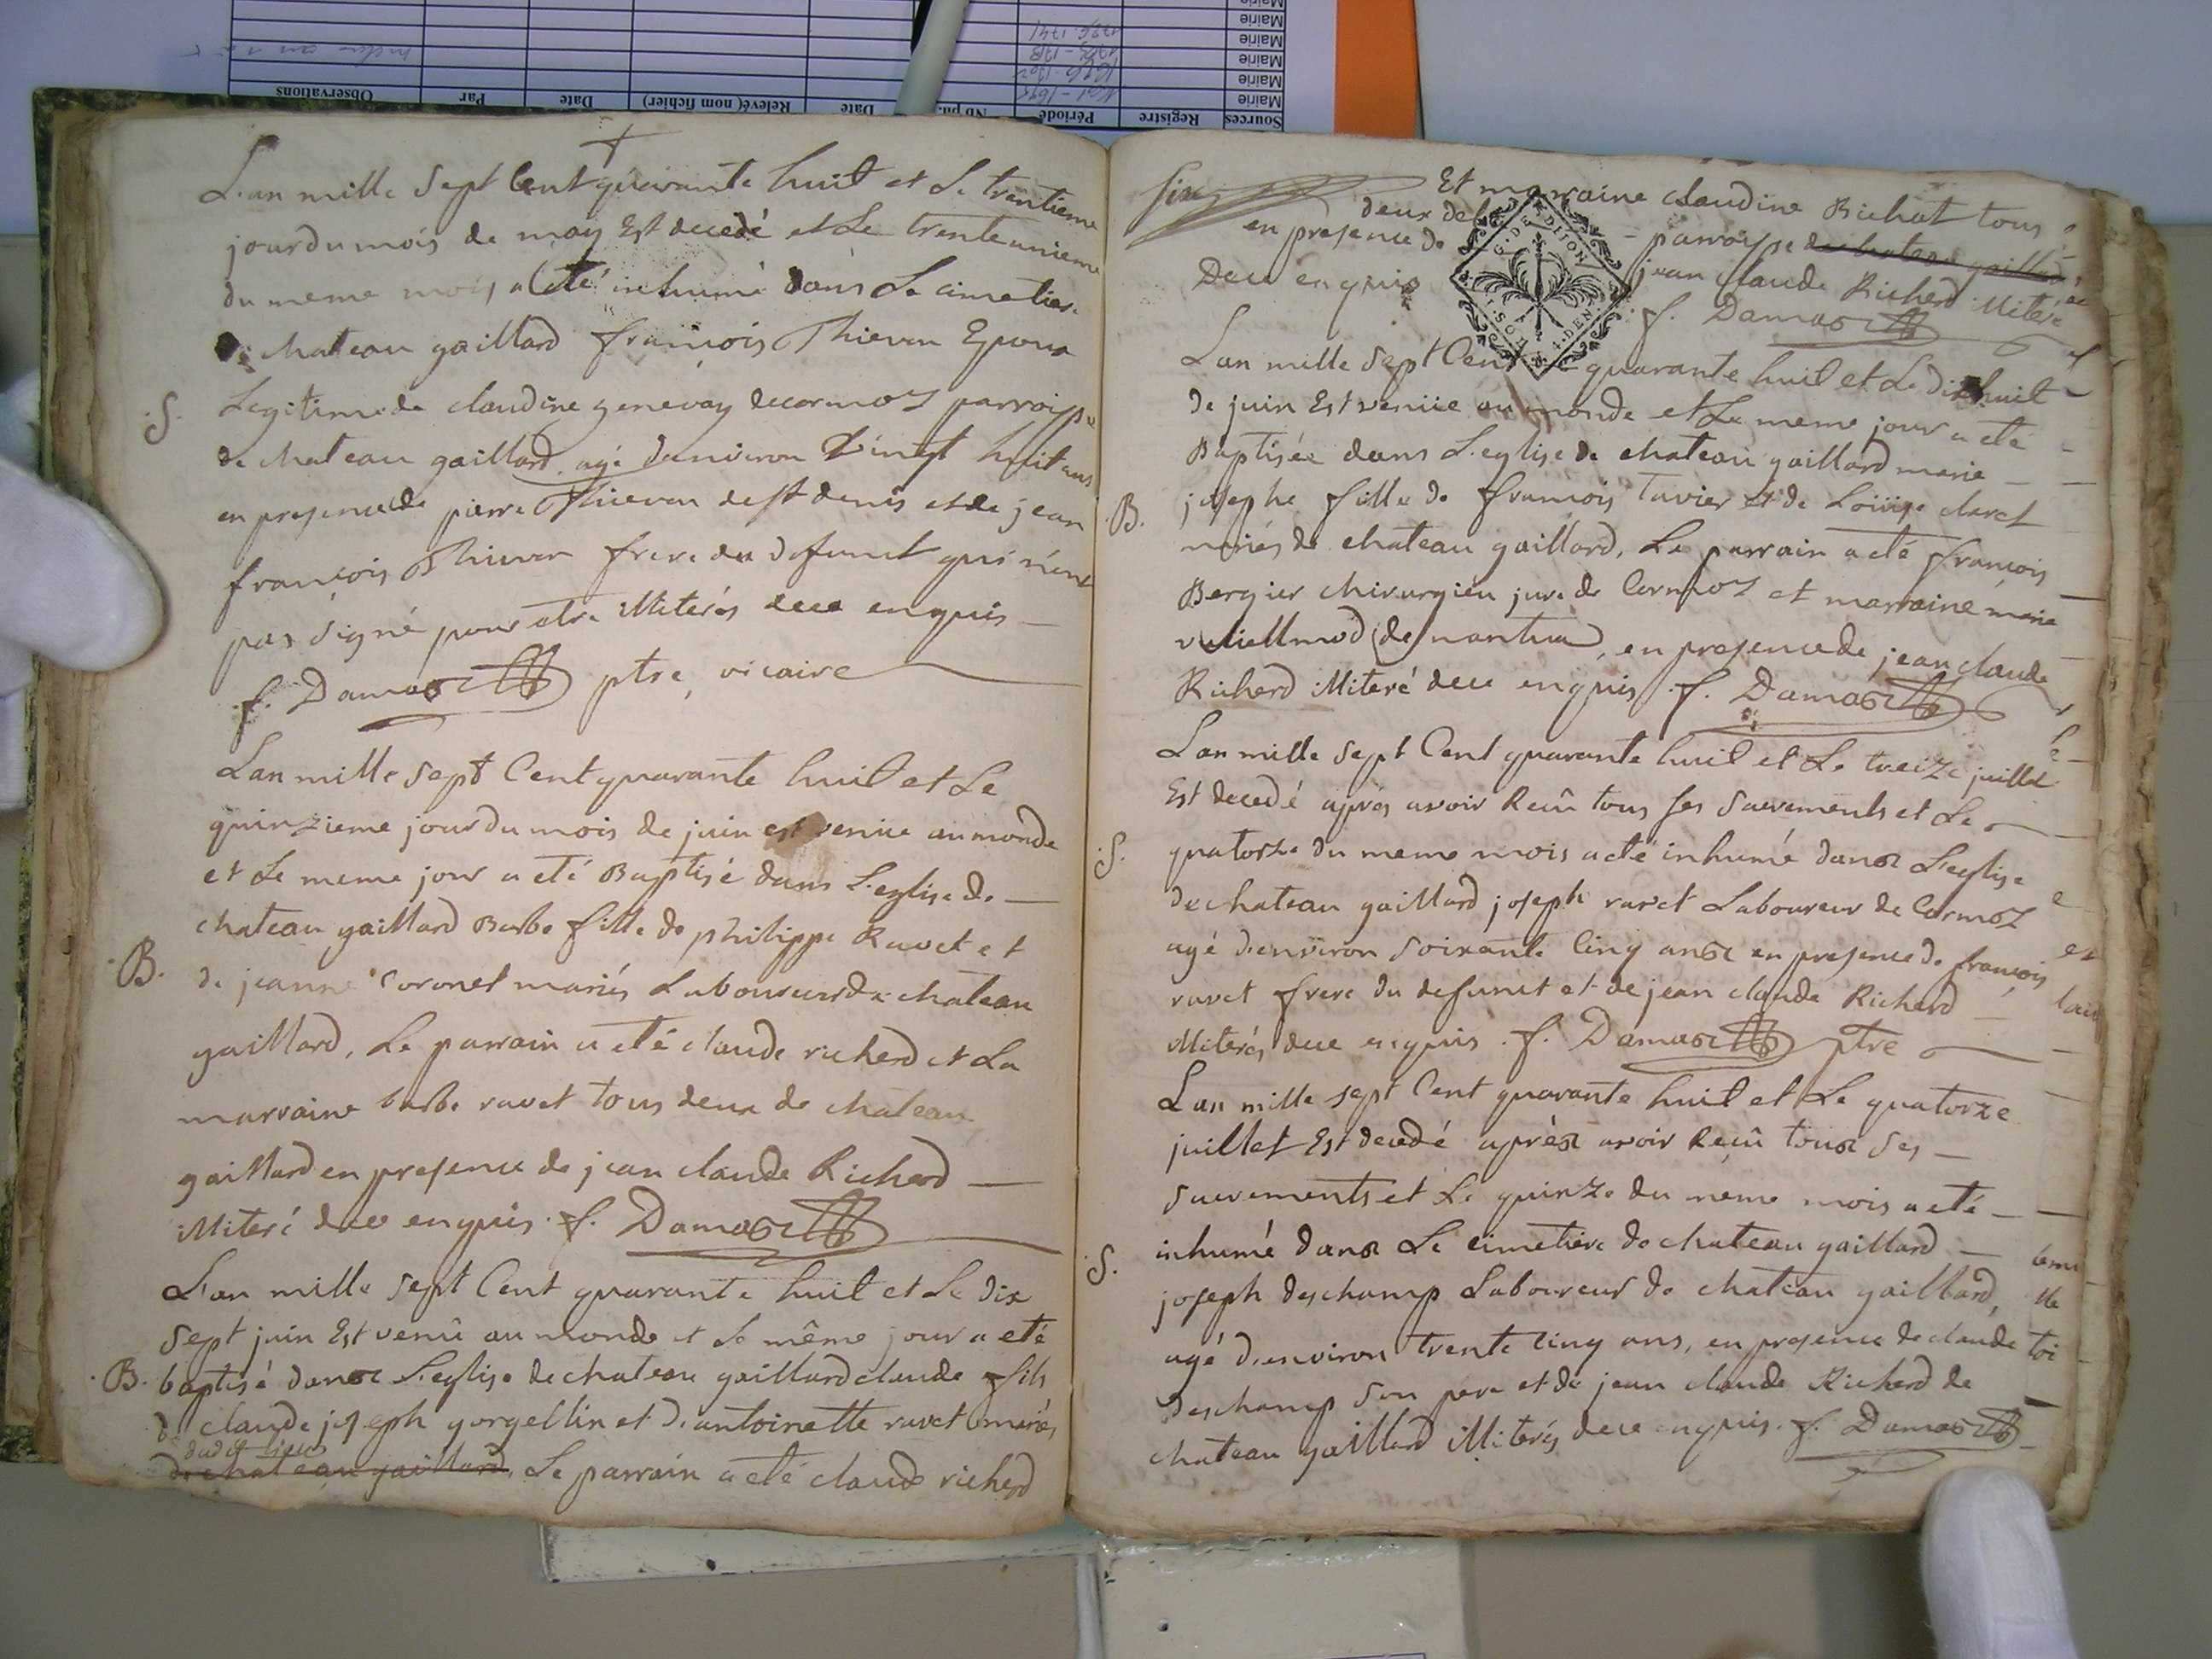 Mairie
Mairie
Mairie
Mairie
Mairie
1726-1741
1703-1713
Sources Registre Période Nb ph. Date Relevé (nom fichier) Date Par Observations
L'an mille Sept Cent quarante huit et Le trentieme
jour du mois de may Est decedé et Le trente unieme
du meme mois a été inhumé dans Le cimetiere
de chateau gaillard francois Thievon Epoux
S. Legitime de claudine genevay de cormoz parroisse
de chateau gaillard agé d'environ Vingt huit ans
en presence de pierre Thievon de st denis et de jean
françois Thievon frere du defunct qui n'ont
pas signé pour etre illiterés de ce enquis
f. Damas ptre, vicaire
L'an mille sept Cent quarante huit et Le
quinzieme jour du mois de juin est venüe au monde
et Le meme jour a eté Baptisé dans L'eglise de
chateau gaillard Barbe fille de philippe Ravet et
B. de jeanne Coronet mariés Laboureurs de chateau
gaillard, Le parrain a eté claude richerd et La
marraine barbe ravet tous deux de chateau
gaillard en presence de jean claude Richerd
illiteré de ce enquis. f. Damas
L'an mille sept Cent quarante huit et Le dix
sept juin Est venû au monde et Le même jour a eté
B. baptisé dans L'eglise de chateau gaillard claude fils
de claude joseph gorgellin et d'antoinette ravet mariés
dudit lieu
de chateau gaillard, Le parrain a eté claude richerd
six Et marraine claudine Bichat tous
deux de parroisse de chateau gaillard
en presence de jean claude Richerd illiteré
De ce enquis f. Damas
G. DE DIJON
L'an mille sept Cent quarante huit et Le dix huit
de juin Est venüe au monde et Le meme jour a eté
Baptisée dans L'eglise de chateau gaillard marie
B. josephe fille de francois Tavier et de Loüise claret
mariés de chateau gaillard, Le parrain a eté francois
Bergier chirurgien juré de Cormoz et marraine marie
de nantua, en presence de jean claude
Richerd illiteré de ce enquis f. Damas
L'an mille sept Cent quarante huit et Le treize juillet
Est decedé après avoir Reçû tous ses sacrements et Le
S. quatorze du meme mois a eté inhumé dans L'eglise
de chateau gaillard joseph ravet Laboureur de Cormoz
agé d'environ soixante Cinq ans en presence de francois
ravet frere du defunct et de jean claude Richerd
illiterés de ce enquis. f. Damas ptre
L'an mille sept Cent quarante huit et Le quatorze
juillet Est decedé après avoir Reçû tous ses
sacrements et Le quinze du meme mois a eté
S. inhumé dans Le cimetiere de chateau gaillard
joseph deschamp Laboureur de chateau gaillard,
agé d'environ trente cinq ans, en presence de claude
deschamp son pere et de jean claude Richerd de
chateau gaillard illiterés de ce enquis. f. Damas